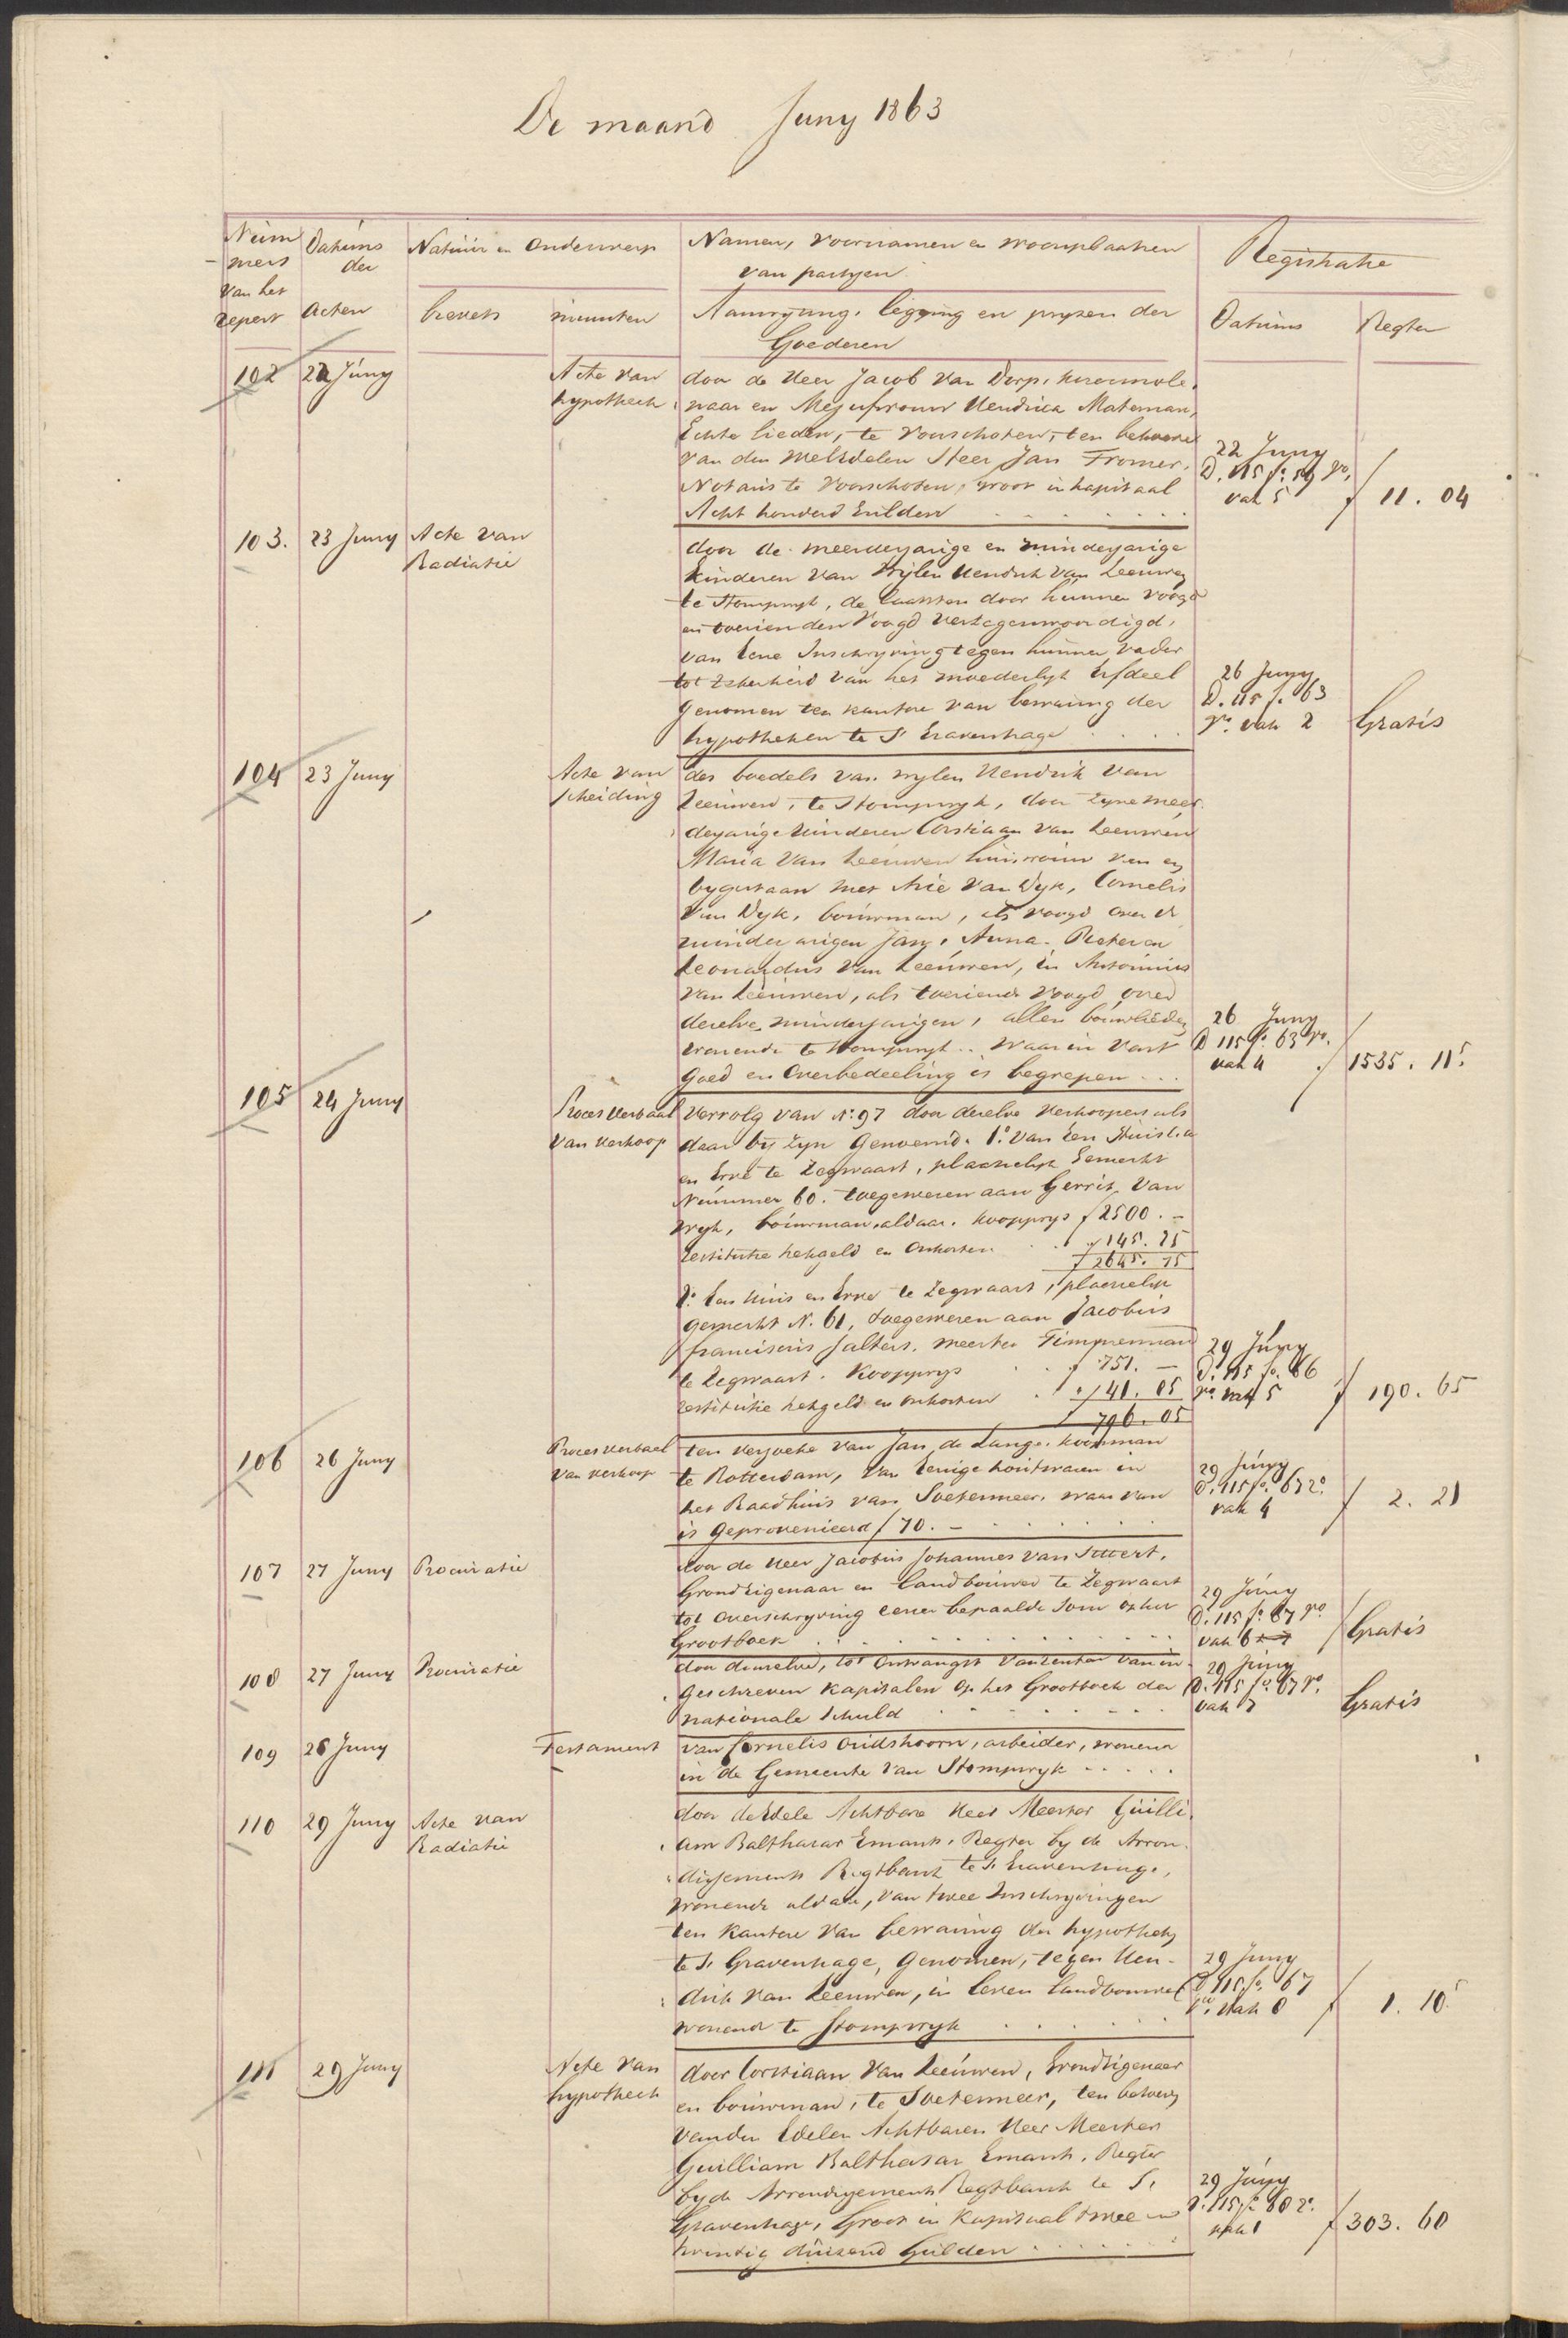 De maand Juny 1863
Num
mers
van het
repert
Datums
der
Acten
Natuur en Onderwerp
brevets
minuten
Namen, voornamen en woonplaatsen
van partyen
Aanwyzing, ligging en pryzen der
Goederen
Registratie
Datums
Regten
102
22 Juny
Acte van
hypotheek
door de Heer Jacob van Dorp, korenmole-
naar en Mejufvrouw Hendrica Mateman,
Echte lieden, te Voorschoten, ten behoeve
van den WelEdelen Heer Jan Fromer,
Notaris te Voorschoten, groot in kapitaal
Acht honderd Gulden
22 Juny
D. 115 fo. 59 vo.
vak 5
f 11. 04
103.
23 Juny
Acte van
Radiatie
door de meerderjarige en minderjarige
kinderen van Wijlen Hendrik van Leeuwen
te Stompwyk, de laatsten door hunnen voogd
en toezienden Voogd vertegenwoordigd,
van Eene Inschryving tegen hunnen vader
tot zekerheid van het moederlyk Erfdeel
genomen ten kantore van bewaring der
hypotheken te S Gravenhage
26 Juny
D. 115 f. 63
vo. vak 2
Gratis
104
23 Juny
Acte van
scheiding
des boedels van wylen Hendrik van
Leeuwen, te Stompwyk, door zyne meer-
derjarige kinderen Corstiaan van Leeuwen
Maria van Leeuwen huisvrouw van en
bygestaan met Arie van Dyk, Cornelis
van Dyk, bouwman, als voogd over de
minderjarigen Jan, Anna, Pieter en
Leonardus van Leeuwen, en Antonius
van Leeuwen, als toeziende voogd over
dezelve minderjarigen, allen bouwlieden
wonende te Stompwyk .. waarin vast
goed en Overbedeeling is begrepen
26 Juny
D 115 fo. 63 vo.
vak 4
f 1535. 11 5
105
24 Juny
Proces Verbaal
van verkoop
Vervolg van No. 97 door dezelve Verkoopers als
daar bij zyn genoemd. 1o. van Een Huis
en Erve te Zegwaart, plaatselyk Gemerkt
Nummer 60. toegewezen aan Gerrit van
Wyk, bouwman aldaar. koopprys f 2500. -
restitutie hekgeld en Onkosten f 145. 75
f 2645. 75
2o. Een Huis en Erve te Zegwaart, plaatselyk
gemerkt N. 61, toegewezen aan Jacobus
franciscus Salters, meester Timmerman
te Zegwaart. Koopprys f 751. -
restitutie hekgeld en onkosten f 41. 05
f 796. 05
29 Juny
D. 115 fo. 66
vo. vak 5
f 190. 65
106
26 Juny
Proces verbaal
van verkoop
ten verzoeke van Jan de Lange, koopman
te Rotterdam, van Eenige houtwaren in
het Raadhuis van Soetermeer, waar van
is geprovenieerd f 70. -
29 Juny
D. 115 fo. 67 ro.
vak 4
f 2. 21
107
27 Juny
Procuratie
door de Heer Jacobus Johannes van Sittert,
Grondeigenaar en Landbouwer te Zegwaart
tot Overschryving eener bepaalde Som op het
Grootboek
29 Juny
D. 115 fo. 67 vo
vak 6
Gratis
108
27 Juny
Procuratie
door denzelve, tot Ontvangst van renten van in-
geschreven kapitalen op het Grootboek der
nationale Schuld
29 Juny
D. 115 fo. 67 vo.
vak 7
Gratis
109
28 Juny
Testament
van Cornelis Oudshoorn, arbeider, wonende
in de Gemeente van Stompwyk
110
29 Juny
Acte van
Radiatie
door de Edele Achtbare Heer Meester Guilli-
am Balthazar Emants, Regter by de Arron-
dissements Regtbank te S. Gravenhage,
wonende aldaar, van twee Inschryvingen
ten kantore van bewaring der hypotheken
te S. Gravenhage, genomen, tegen Hen-
drik van Leeuwen, in leven landbouwer
wonende te Stompwyk
29 Juny
D 115 fo. 67
vo. vak 8
f 1. 10 5
111
29 Juny
Acte van
hypotheek
door Corstiaan van Leeuwen, Grondeigenaar
en bouwman, te Soetermeer, ten behoeve
van den Edelen Achtbaren Heer Meester
Guilliam Balthazar Emants, Regter
by de Arrondissements Regtbank te S.
Gravenhage, Groot in Kapitaal twee en
twintig duizend Gulden
29 Juny
D. 115 fo. 68 ro.
vak 1
f 303. 60